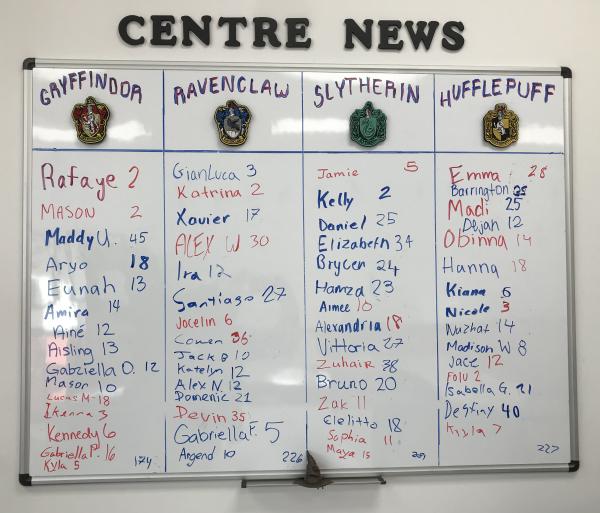 CENTRE NEWS
GRYFFINDOR
Rafaye 2
MASON 2
Maddy U. 45
Aryo 18
Eunah 13
Amira 14
Ainé 12
Aisling 13
Gabriella O. 12
Mason 10
Lucas M. 18
Ikenna 3
Kennedy 6
Gabriella P. 16
Kyla 5
174
RAVENCLAW
GianLuca 3
Katrina 2
Xavier 17
ALEX W 30
Ira 12
Santiago 27
Jocelin 6
Cowen 36
Jack 10
Katelyn 12
Alex N. 12
Domenic 21
Devin 35
Gabriella F. 5
Argend 10
226
SLYTHERIN
Jamie 5
Kelly 2
Daniel 25
Elizabeth 34
Brycen 24
Hamza 23
Aimee 10
Alexandria 18
Vittoria 27
Zuhair 38
Bruno 20
Zak 11
Clelitto 18
Sophia 11
Maya 15
HUFFLEPUFF
Emma 28
Barrington
Madi 25
Dejah 12
Obinna 14
Hanna 18
Kiana 6
Nicole 3
Nuzhat 14
Madison W 8
Jace 12
Folu 2
Isabella G. 21
Destiny 40
Kayla 7
227